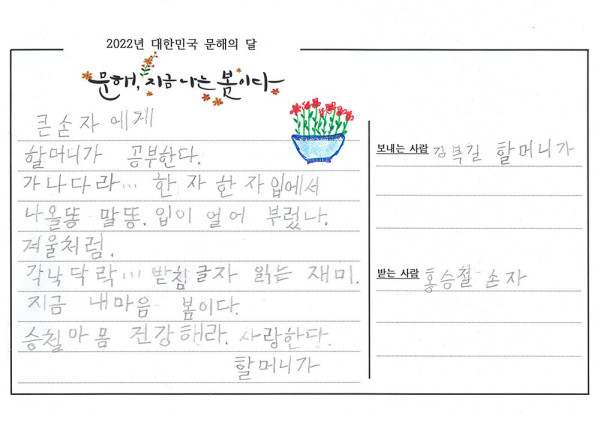 2022년 대한민국 문해의 달
문해, 지금 나는 봄이다
큰손자에게
할머니가 공부한다.
가나다라... 한자한자입에서
나올똥 말똥. 입이 얼어 부렀나.
겨울처럼.
각낙닥락... 받침글자 읽는 재미.
지금 내마음 봄이다.
승철아 몸 건강해라. 사랑한다.
할머니가
보내는 사람 김복길 할머니가
받는 사람 홍승철 손자